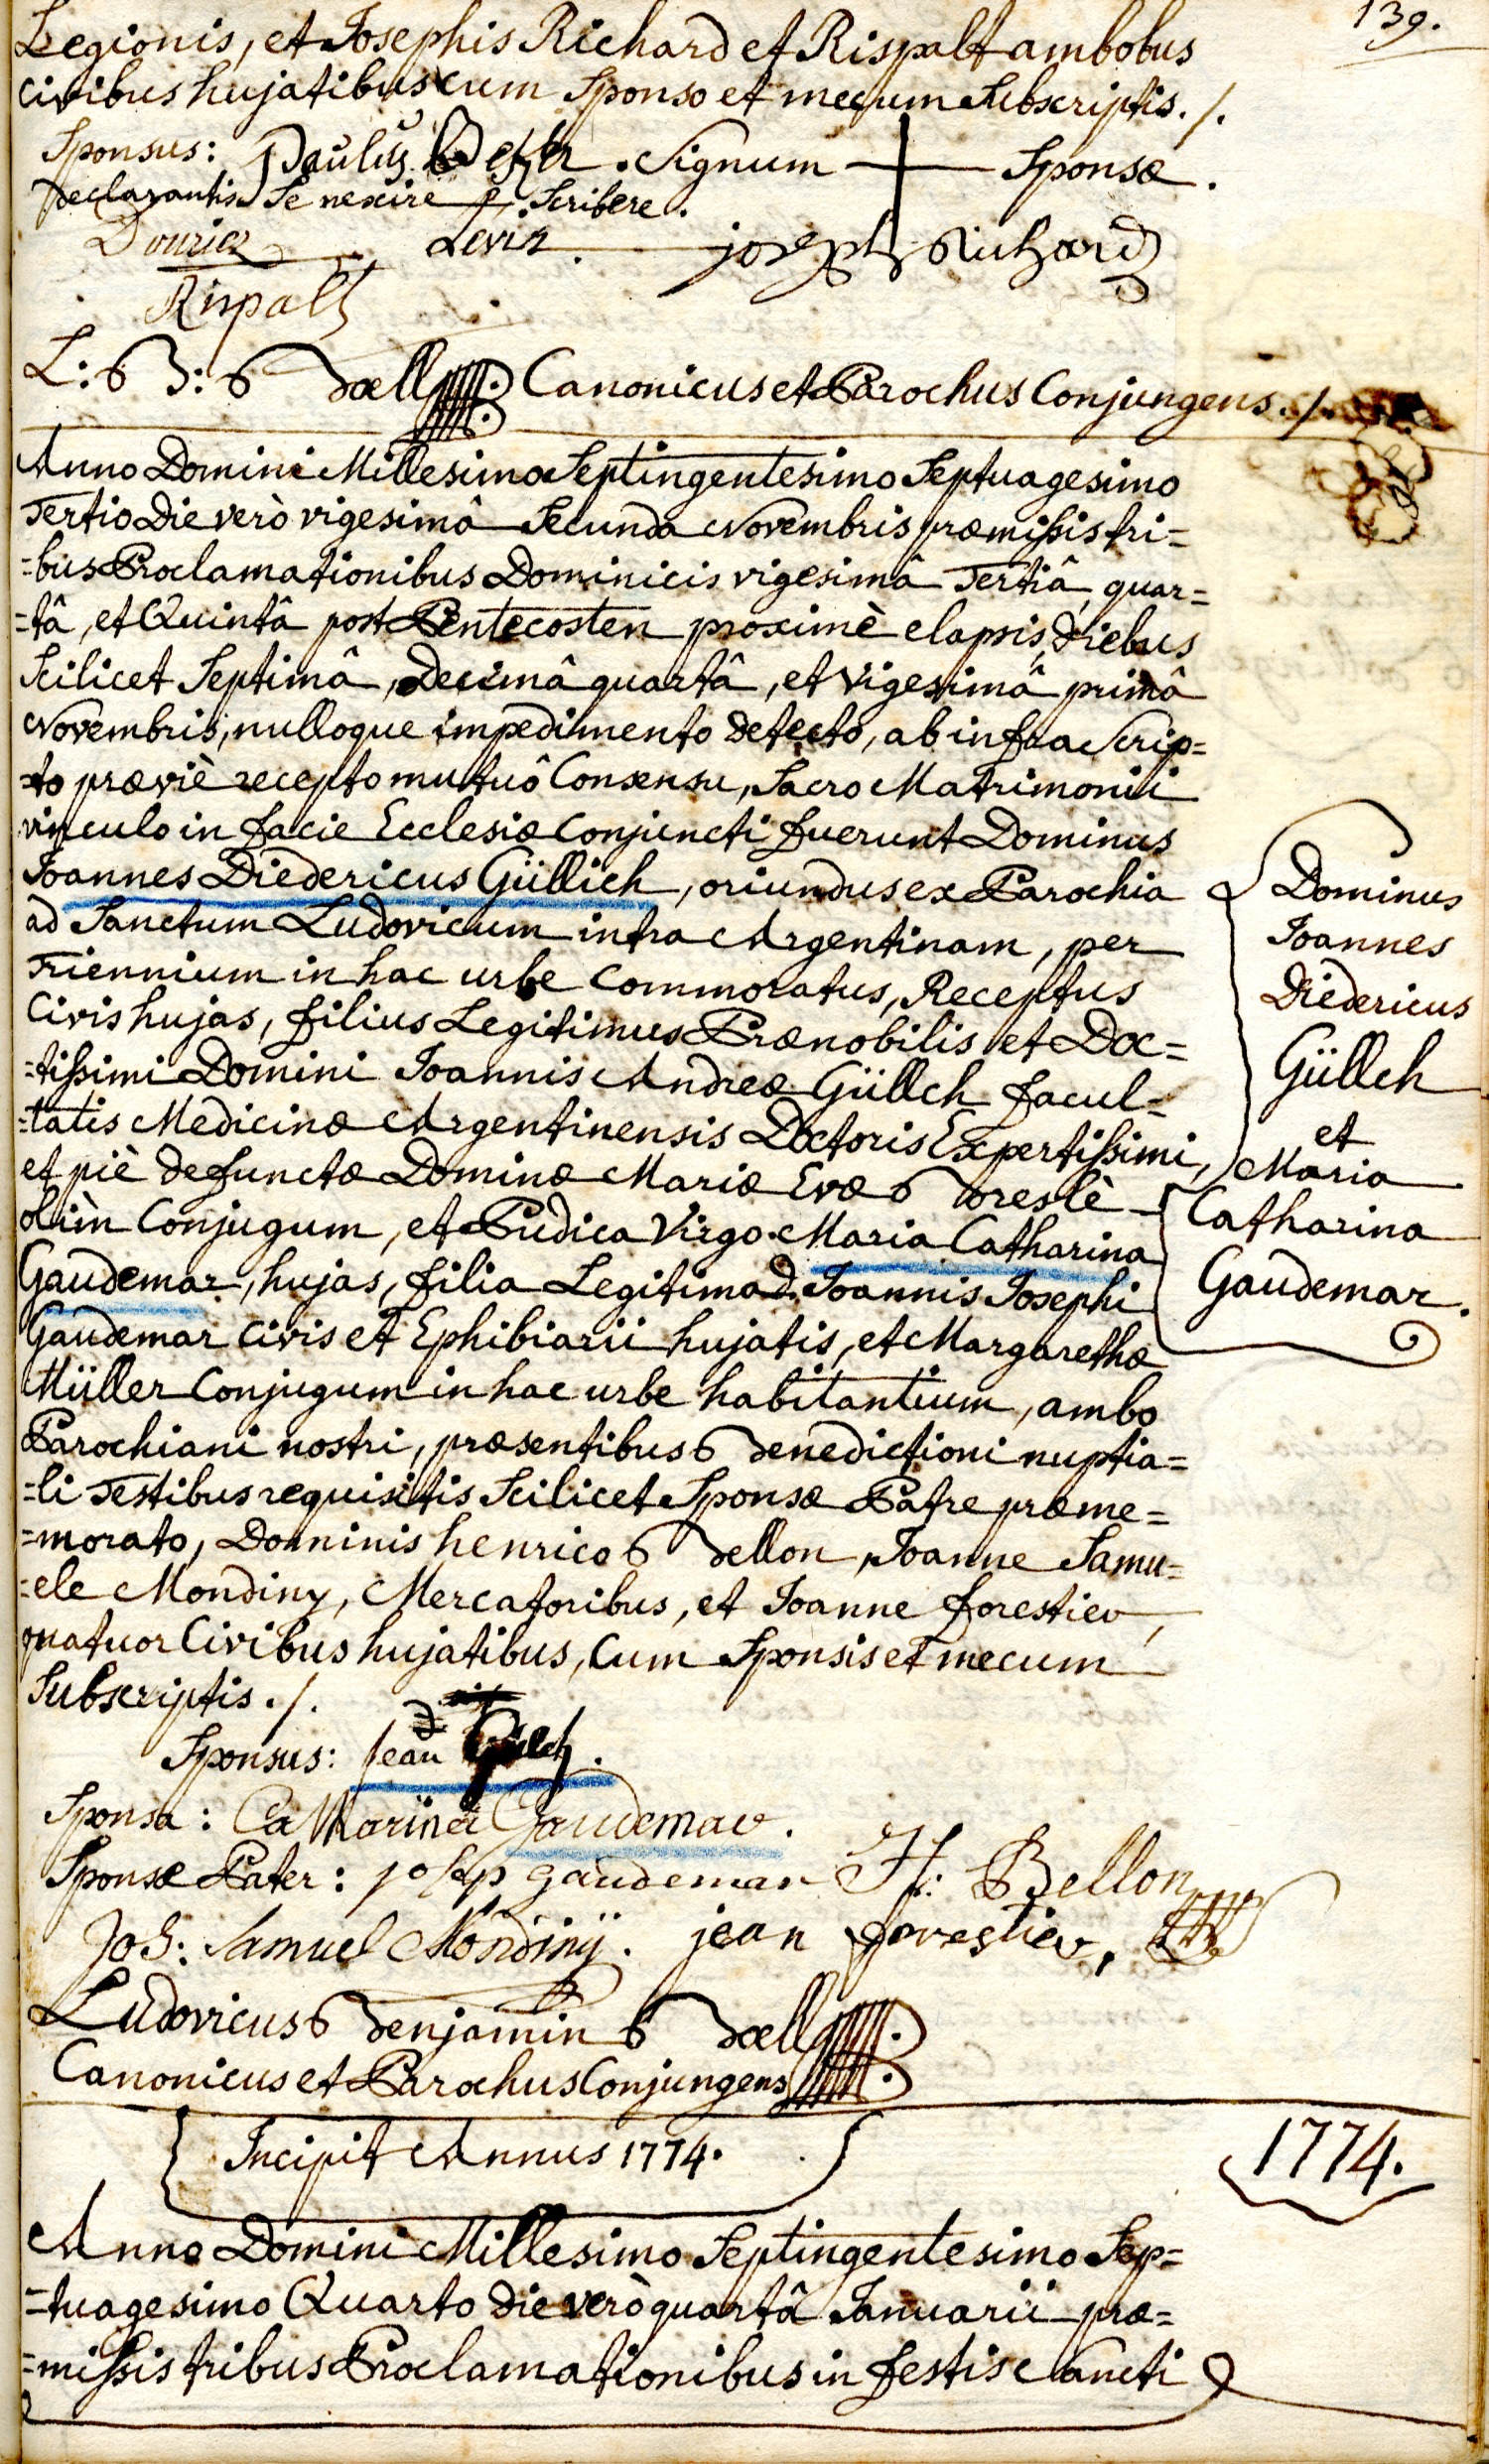 139.
Legionis, et Josephis Richard et Rispalt ambobus
Civibus hujatibus cum Sponso et mecum Subscriptis ./.
Sponsus: Paulus . Signum + Sponsæ .
declarantis Se nescire Scribere .
Levis . joseph Richard
Rispalt
L: B: Bœll Canonicus et Parochus Conjungens ./.
Anno Domini Millesimo Septingentesimo Septuagesimo
Tertio Die verò vigesimâ Secunda Novembris præmissis tri=
=bus Proclamationibus Dominicis vigesimâ Tertiâ, quar=
=tâ, et Quintâ post Pentecosten proximè elapsis, Diebus
Scilicet Septimâ, Decimâ quartâ, et vigesimâ primâ
Novembris, nulloque impedimento detecto, ab infra Scrip=
=to præviè recepto mutuô Consensu, Sacro Matrimonii
vinculo in facie Ecclesiæ Conjuncti fuerunt Dominus
Joannes Diedericus Güllich, oriundus ex Parochia
ad Sanctum Ludovicum intra Argentinam, per
Triennium in hac urbe Commoratus, Receptus
Civis hujas, filius Legitimus Prænobilis et Doc=
=tissimi Domini Joannis Andreæ Güllch facul=
=tatis Medicinæ Argentinensis Doctoris Expertissimi,
et piè defunctæ Dominæ Mariæ Evæ Breslè
olim Conjugum, et Pudica Virgo Maria Catharina
Gaudemar, hujas, filia Legitima D. Joannis Josephi
Gaudemar Civis et Ephibiarii hujatis, et Margarethæ
Müller Conjugum in hac urbe habitantium, ambo
Parochiani nostri, præsentibus Benedictioni nuptia=
=li Testibus requisitis Scilicet Sponsæ Patre præme=
=morato, Dominis henrico Bellon, Joanne Samu=
=ele Mondiny, Mercatoribus, et Joanne forestier,
quatuor Civibus hujatibus, Cum Sponsis et mecum
Subscriptis ./.
Dominus
Joannes
Diedericus
Güllch
et
Maria
Catharina
Gaudemar.
Sponsus: Jean Gülch .
Sponsa: Catharina Gaudemar .
Sponsæ Pater: josep gaudemar H: Bellon
Joh: Samuel Mondiny . jean forestier,
Ludovicus Benjamin Bœll
Canonicus et Parochus Conjungens
Incipit Annus 1774.
1774.
Anno Domini Millesimo Septingentesimo Sep=
=tuagesimo Quarto die verò quartâ Januarii præ=
=missis tribus Proclamationibus in festis Sancti